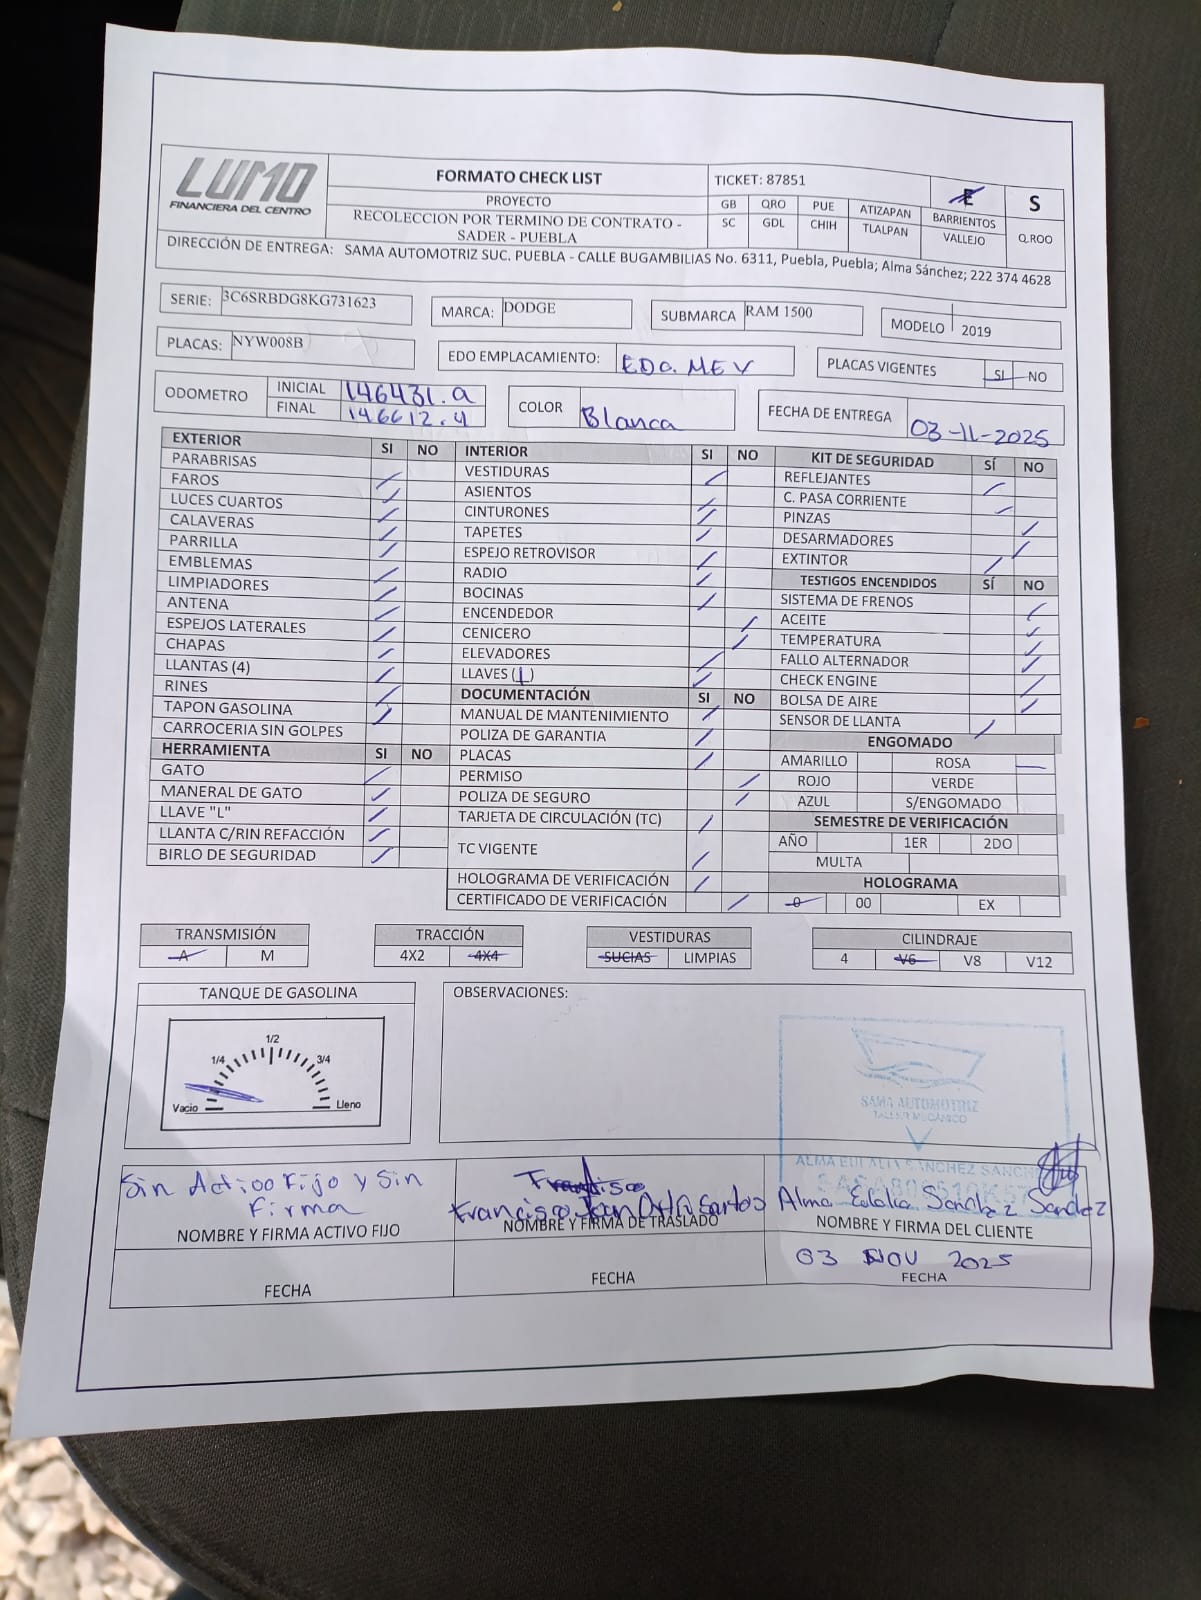 LUMO
FINANCIERA DEL CENTRO
FORMATO CHECK LIST
PROYECTO
RECOLECCION POR TERMINO DE CONTRATO -
SADER - PUEBLA
TICKET: 87851
E
S
GB QRO PUE ATIZAPAN BARRIENTOS
SC GDL CHIH TLALPAN VALLEJO Q.ROO
DIRECCIÓN DE ENTREGA: SAMA AUTOMOTRIZ SUC. PUEBLA - CALLE BUGAMBILIAS No. 6311, Puebla, Puebla; Alma Sánchez; 222 374 4628
SERIE: 3C6SRBDG8KG731623
MARCA: DODGE
SUBMARCA RAM 1500
MODELO 2019
PLACAS: NYW008B
EDO EMPLACAMIENTO: EDO. MEX
PLACAS VIGENTES SI NO
ODOMETRO
INICIAL 146431.9
FINAL 146612.4
COLOR Blanca
FECHA DE ENTREGA 03-11-2025
EXTERIOR SI NO
PARABRISAS
FAROS
LUCES CUARTOS
CALAVERAS
PARRILLA
EMBLEMAS
LIMPIADORES
ANTENA
ESPEJOS LATERALES
CHAPAS
LLANTAS (4)
RINES
TAPON GASOLINA
CARROCERIA SIN GOLPES
HERRAMIENTA SI NO
GATO
MANERAL DE GATO
LLAVE "L"
LLANTA C/RIN REFACCIÓN
BIRLO DE SEGURIDAD
INTERIOR SI NO
VESTIDURAS
ASIENTOS
CINTURONES
TAPETES
ESPEJO RETROVISOR
RADIO
BOCINAS
ENCENDEDOR
CENICERO
ELEVADORES
LLAVES (1)
DOCUMENTACIÓN SI NO
MANUAL DE MANTENIMIENTO
POLIZA DE GARANTIA
PLACAS
PERMISO
POLIZA DE SEGURO
TARJETA DE CIRCULACIÓN (TC)
TC VIGENTE
HOLOGRAMA DE VERIFICACIÓN
CERTIFICADO DE VERIFICACIÓN
KIT DE SEGURIDAD SÍ NO
REFLEJANTES
C. PASA CORRIENTE
PINZAS
DESARMADORES
EXTINTOR
TESTIGOS ENCENDIDOS SÍ NO
SISTEMA DE FRENOS
ACEITE
TEMPERATURA
FALLO ALTERNADOR
CHECK ENGINE
BOLSA DE AIRE
SENSOR DE LLANTA
ENGOMADO
AMARILLO ROSA
ROJO VERDE
AZUL S/ENGOMADO
SEMESTRE DE VERIFICACIÓN
AÑO 1ER 2DO
MULTA
HOLOGRAMA
0 00 EX
TRANSMISIÓN
A M
TRACCIÓN
4X2 4X4
VESTIDURAS
SUCIAS LIMPIAS
CILINDRAJE
4 V6 V8 V12
TANQUE DE GASOLINA
1/2
1/4 3/4
Vacio Lleno
OBSERVACIONES:
SAMA AUTOMOTRIZ
TALLER MECÁNICO
ALMA EULALIA SANCHEZ SANCHEZ
Sin Activo Fijo y Sin
Firma
NOMBRE Y FIRMA ACTIVO FIJO
FECHA
Francisco
Francisco Joan Ortiz Santos
NOMBRE Y FIRMA DE TRASLADO
FECHA
Alma Eulalia Sanchez Sanchez
NOMBRE Y FIRMA DEL CLIENTE
03 NOV 2025
FECHA